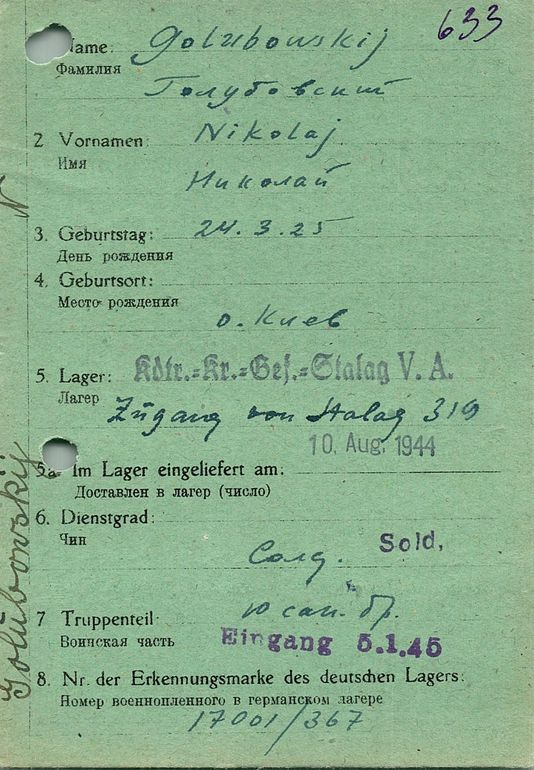 633
Name: Golubowskij
Фамилия
Голубовский
2 Vornamen: Nikolaj
Имя
Николай
3. Geburtstag: 24.3.25
День рождения
4. Geburtsort:
Место рождения
о. Киев
5. Lager: Kdtr.=Kr.=Gef.=Stalag V. A.
Лагерь
Zugang von Stalag
10. Aug. 1944
5a Im Lager eingeliefert am:
Доставлен в лагер (число)
6. Dienstgrad:
Чин
Солд. Sold,
7 Truppenteil
Воинская часть
сан. бр.
Eingang 5.1.45
8. Nr. der Erkennungsmarke des deutschen Lagers:
Номер военнопленного в германском лагере
17001/367
Golubowskij N